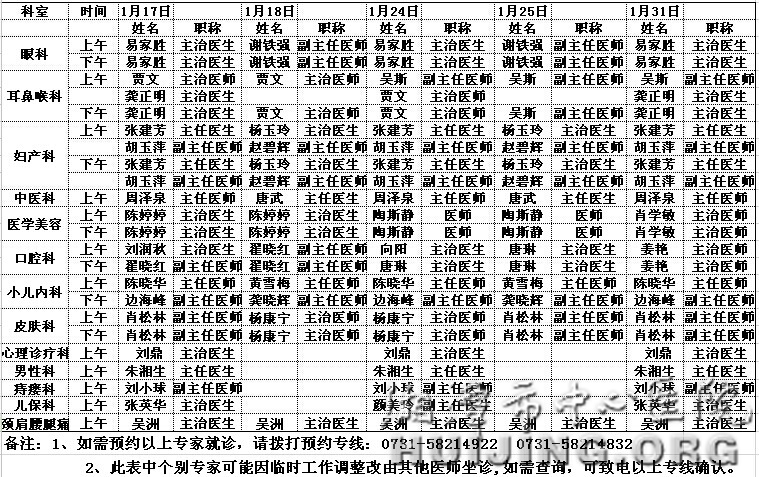 科室 时间 1月17日 1月18日 1月24日 1月25日 1月31日
姓名 职称 姓名 职称 姓名 职称 姓名 职称 姓名 职称
眼科 上午 易家胜 主治医生 谢铁强 副主任医师 易家胜 主治医生 谢铁强 副主任医师 易家胜 主治医生
下午 易家胜 主治医生 谢铁强 副主任医师 易家胜 主治医生 谢铁强 副主任医师 易家胜 主治医生
耳鼻喉科 上午 贾文 主治医师 贾文 主治医师 吴斯 副主任医师 吴斯 副主任医师 吴斯 副主任医师
龚正明 主治医生 贾文 主治医师 龚正明 主治医生
下午 龚正明 主治医生 贾文 主治医师 贾文 主治医师 吴斯 副主任医师 龚正明 主治医生
妇产科 上午 张建芳 主任医生 杨玉玲 主治医生 张建芳 主任医生 杨玉玲 主治医生 张建芳 主任医生
胡玉萍 副主任医师 赵碧辉 副主任医师 胡玉萍 副主任医师 赵碧辉 副主任医师 胡玉萍 副主任医师
下午 张建芳 主任医生 杨玉玲 主治医生 张建芳 主任医生 杨玉玲 主治医生 张建芳 主任医生
胡玉萍 副主任医师 赵碧辉 副主任医师 胡玉萍 副主任医师 赵碧辉 副主任医师 胡玉萍 副主任医师
中医科 上午 周泽泉 主任医师 唐武 主任医师 周泽泉 主任医师 唐武 主任医师 周泽泉 主任医师
医学美容 上午 陈婷婷 主治医生 陈婷婷 主治医生 陶斯静 医师 陶斯静 医师 肖学敏 主治医师
下午 陈婷婷 主治医生 陈婷婷 主治医生 陶斯静 医师 陶斯静 医师 肖学敏 主治医师
口腔科 上午 刘润秋 主治医生 翟晓红 副主任医师 向阳 主治医生 唐琳 主治医生 姜艳 主治医师
下午 翟晓红 副主任医师 翟晓红 副主任医师 唐琳 主治医生 唐琳 主治医生 姜艳 主治医师
小儿内科 上午 陈晓华 主任医师 黄雪梅 主任医师 陈晓华 主任医师 黄雪梅 主任医师 陈晓华 主任医师
下午 边海峰 副主任医师 龚晓辉 副主任医师 边海峰 副主任医师 龚晓辉 副主任医师 边海峰 副主任医师
皮肤科 上午 肖松林 副主任医师 杨康宁 主治医师 杨康宁 主治医师 肖松林 副主任医师 肖松林 副主任医师
下午 肖松林 副主任医师 杨康宁 主治医师 杨康宁 主治医师 肖松林 副主任医师 肖松林 副主任医师
心理诊疗科 上午 刘鼎 主治医生 刘鼎 主治医生 刘鼎 主治医生
男性科 上午 朱湘生 主任医师 朱湘生 主任医师 朱湘生 主任医师
痔瘘科 上午 刘小球 副主任医师 刘小球 副主任医师 刘小球 副主任医师
儿保科 上午 张英华 主治医生 颜美吟 主治医生 张英华 主治医生
颈肩腰腿痛 上午 吴洲 主治医生 吴洲 主治医生 吴洲 主治医生 吴洲 主治医生 吴洲 主治医生
湘潭市中心医院
HUIJING.ORG
备注：1、如需预约以上专家就诊，请拨打预约专线：0731-58214922 0731-58214832
2、此表中个别专家可能因临时工作调整改由其他医师坐诊,如需查询，可致电以上专线确认。